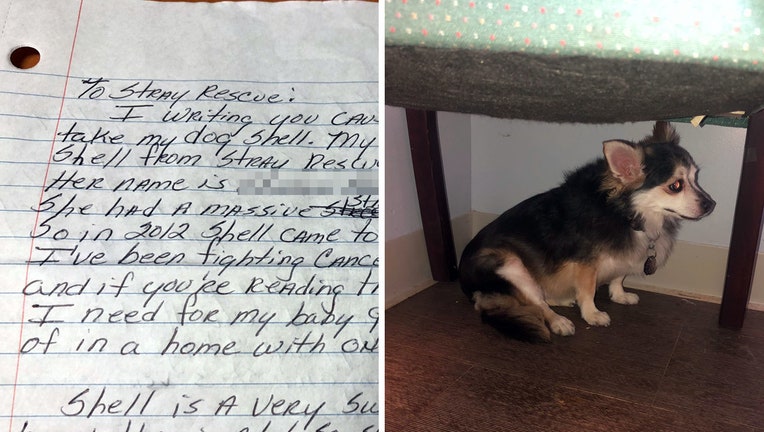 To STRAY Rescue:
I writing you CAUS
take my dog Shell. My
Shell from STRAY Rescu
Her name is
She had A massive
So in 2012 Shell came to
I've been fighting Cance
and if you're Reading th
I need for my baby
of in a home with
Shell is A very Su